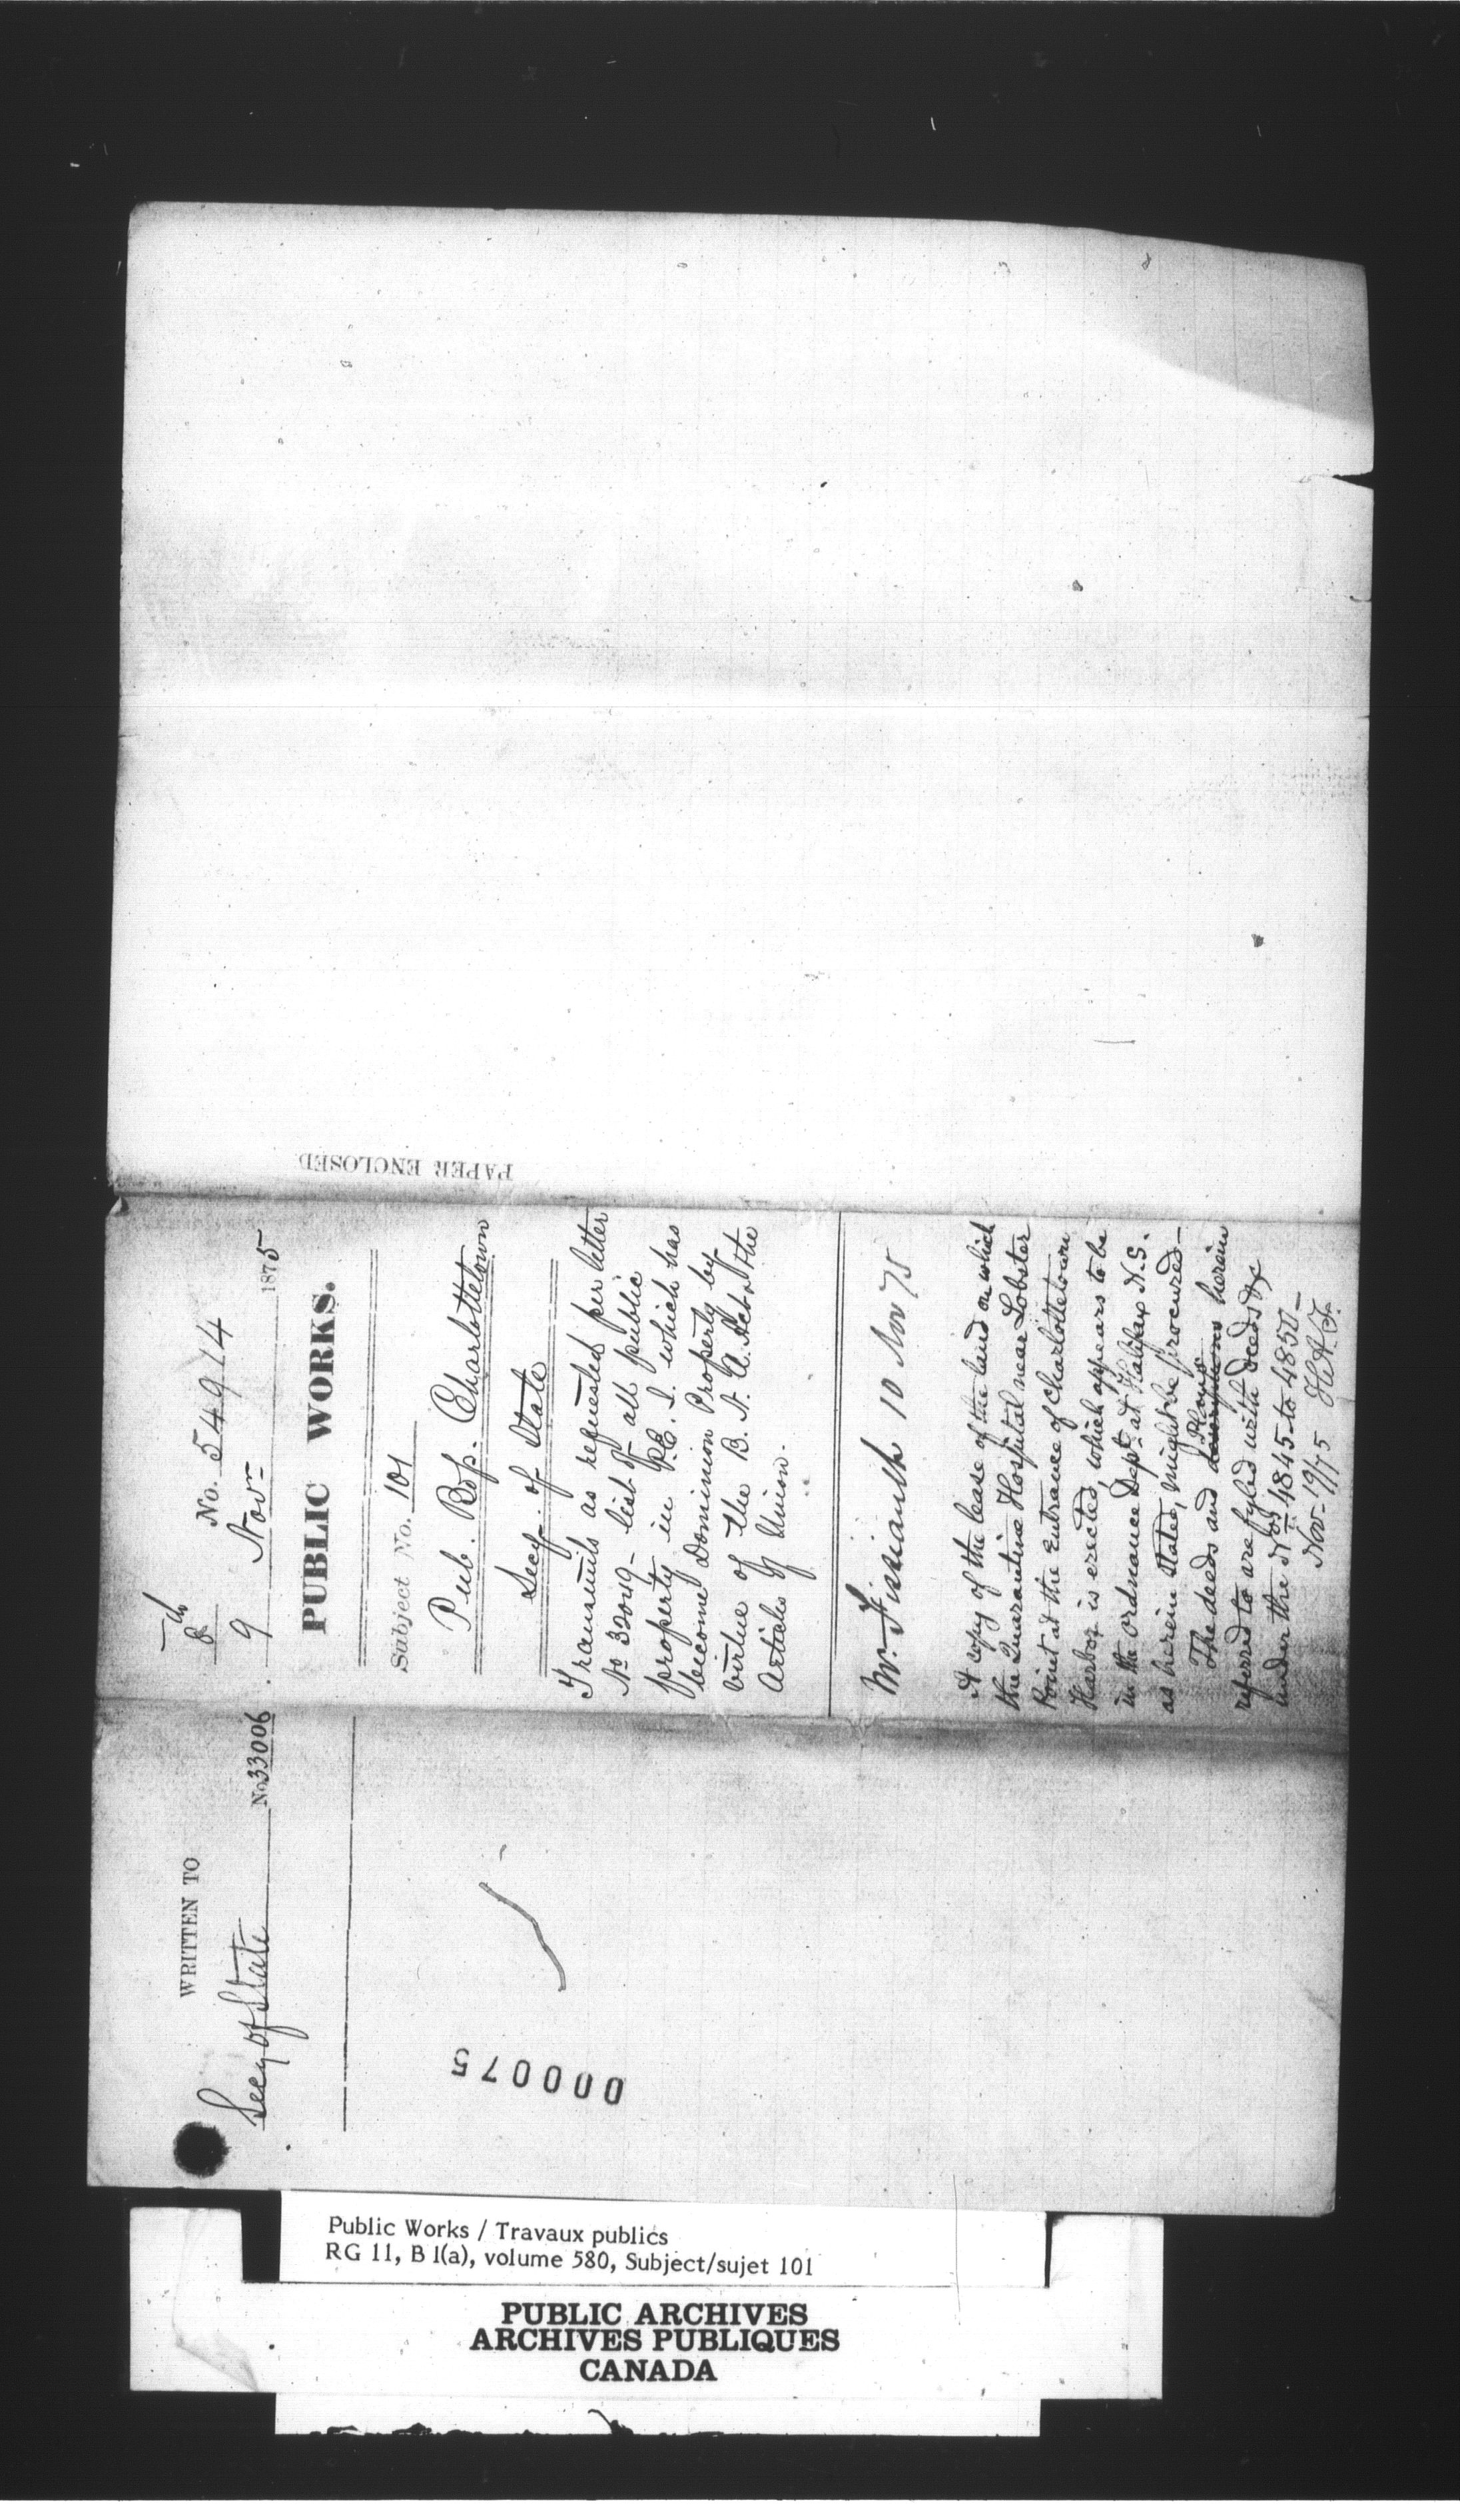 No. 54914
8th
9 Nov- 1875
PUBLIC WORKS.
Subject No. 101
Pub. Bds. Charlottetown
Secy. of State
Transmits as requested per letter
No 32049 - list of all public
property in P.E.I. which has
become Dominion Property by
virtue of the B. N. A. Act & the
Articles of Union.
Mr. 10 Nov 75
A copy of the lease of the land on which
the Quarantine Hospital near Lobster
Point at the Entrance of Charlottetown
Harbor is erected, which appears to be
in the Ordnance Dept. at Halifax N.S.
as herein stated, might be procured -
The deeds and Plans herein
referred to are fyled with deeds &c
under the Nos 4845 to 4850 -
Nov- 19/75
PAPER ENCLOSED
WRITTEN TO
Secy of State No 33006
000075
Public Works / Travaux publics
RG 11, B 1(a), volume 580, Subject/sujet 101
PUBLIC ARCHIVES
ARCHIVES PUBLIQUES
CANADA